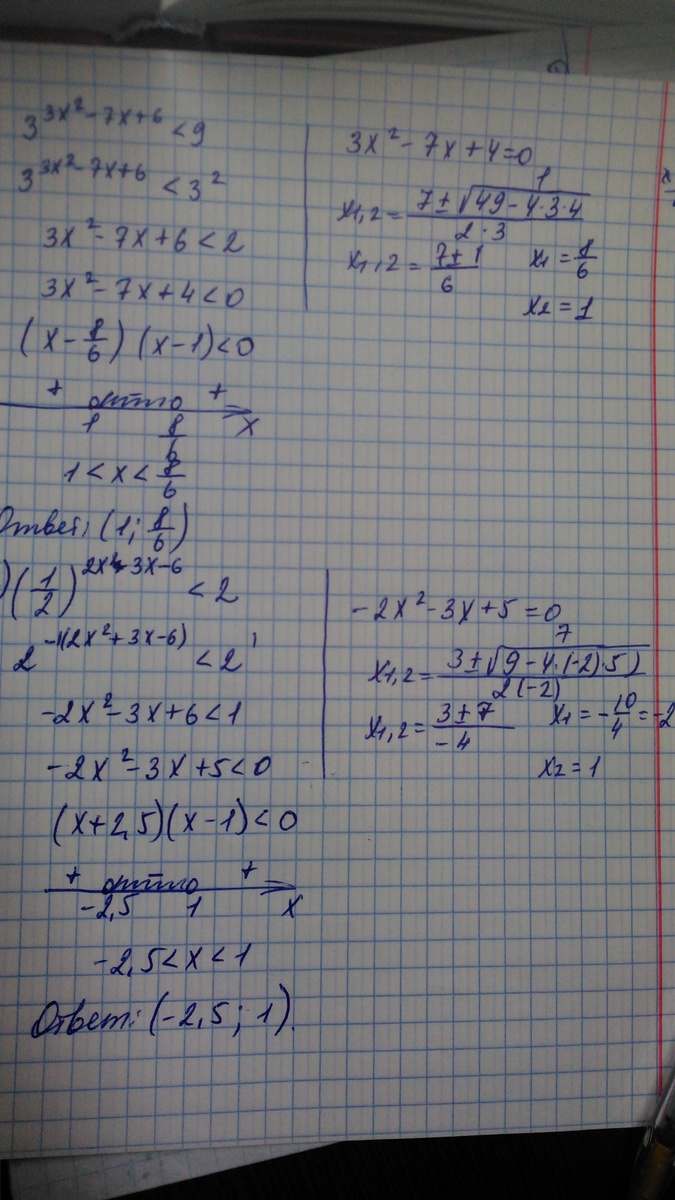 3^{3x²-7x+6} < 9
3^{3x²-7x+6} < 3²
3x²-7x+6 < 2
3x²-7x+4 < 0
(x - 8/6)(x-1) < 0
+ +
1 8/6 x
1 < x < 8/6
Ответ: (1; 8/6)
3x²-7x+4=0
1
x1,2 = (7±√49-4·3·4)/(2·3)
x1,2 = (7±1)/6 x1 = 8/6
x2 = 1
)(1/2)^{2x²+3x-6} < 2
2^{-1(2x²+3x-6)} < 2^1
-2x²-3x+6 < 1
-2x²-3x+5 < 0
(x+2,5)(x-1) < 0
+ +
-2,5 1 x
-2,5 < x < 1
Ответ: (-2,5; 1).
-2x²-3x+5=0
7
x1,2 = (3±√9-4·(-2)·5))/(2(-2))
x1,2 = (3±7)/-4 x1 = -10/4 = -2
x2 = 1